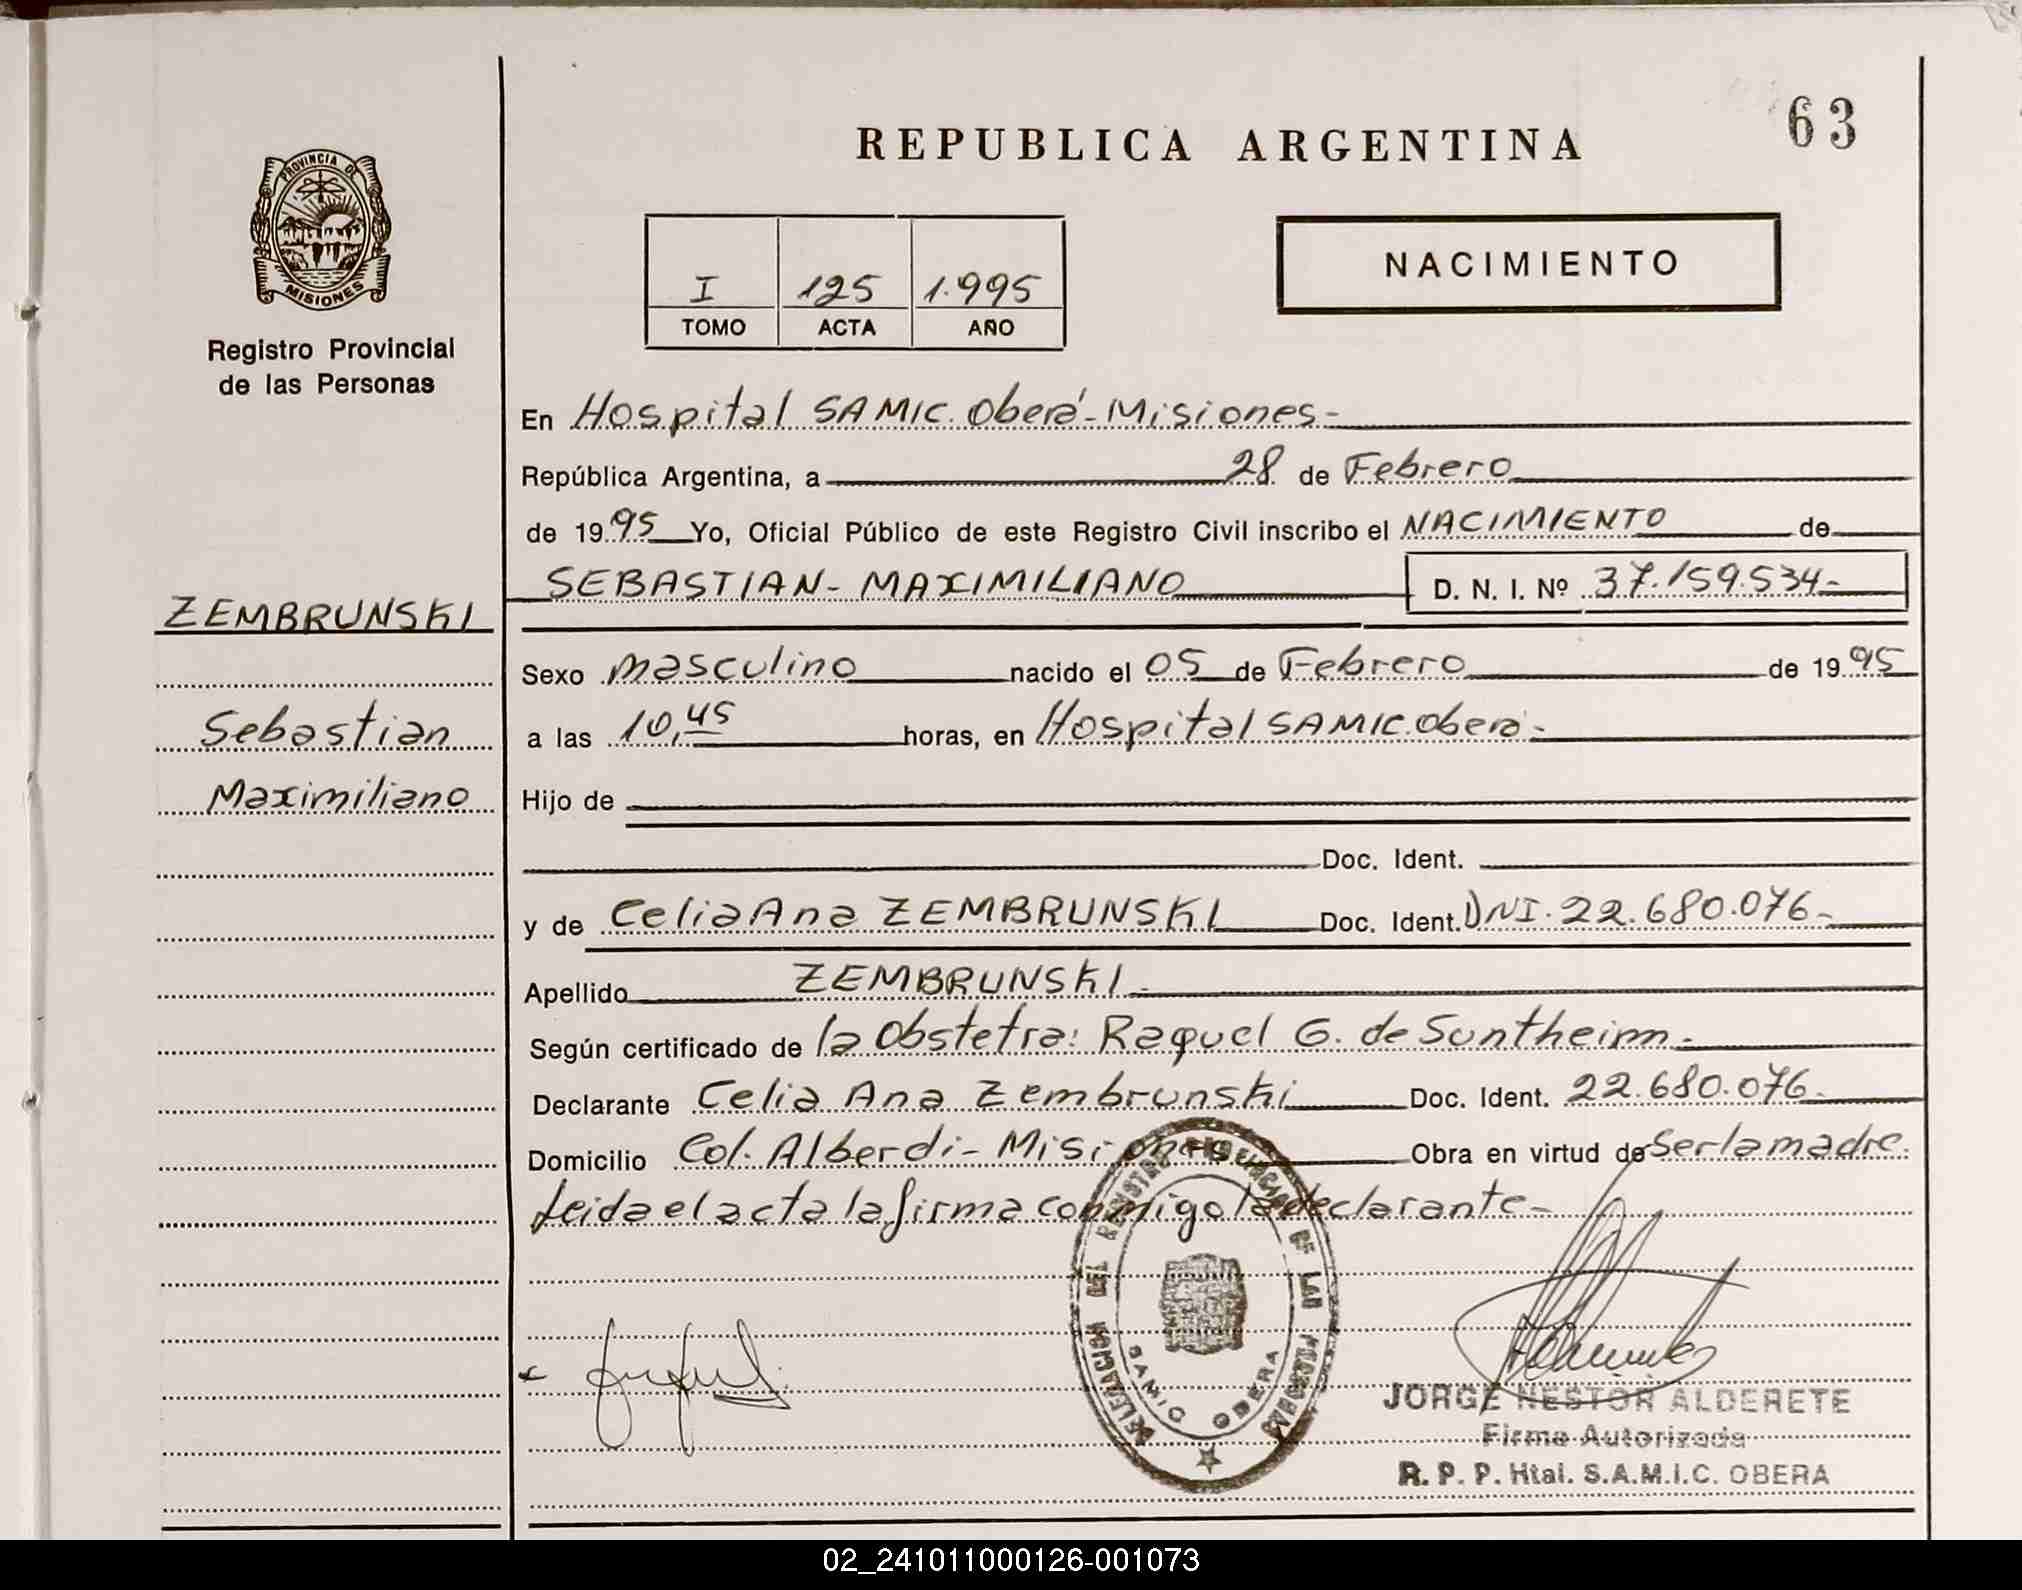 REPUBLICA ARGENTINA
63
PROVINCIA DE
MISIONES
Registro Provincial
de las Personas
I 125 1.995
TOMO ACTA AÑO
NACIMIENTO
En Hospital SAMIC. Oberá-Misiones-
República Argentina, a 28 de Febrero
de 1995 Yo, Oficial Público de este Registro Civil inscribo el NACIMIENTO de
SEBASTIAN-MAXIMILIANO D. N. I. Nº 37.159.534-
ZEMBRUNSKI
Sexo masculino nacido el 05 de Febrero de 1995
Sebastian
a las 10,45 horas, en Hospital SAMIC. Oberá-
Maximiliano
Hijo de
Doc. Ident.
y de Celia Ana ZEMBRUNSKI Doc. Ident. DNI. 22.680.076-
Apellido ZEMBRUNSKI-
Según certificado de la Obstetra: Raquel G. de Suntheim-
Declarante Celia Ana Zembrunski Doc. Ident. 22.680.076-
Domicilio Col. Alberdi- Misiones Obra en virtud de Ser la madre.
Leida el acta la firma conmigo la declarante-
DELEGACION DEL REGISTRO DE LAS PERSONAS
SAMIC OBERA
JORGE NESTOR ALDERETE
Firma Autorizada
R. P. P. Htal. S.A.M.I.C. OBERA
02_241011000126-001073